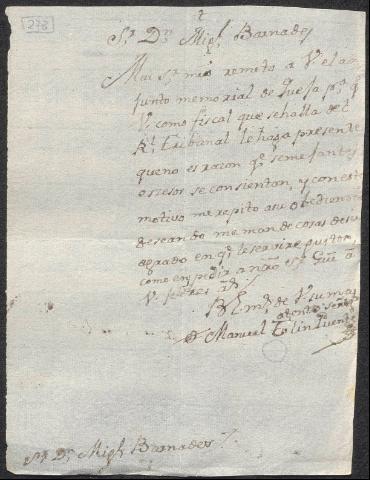 278
Sr. Dn. Migl. Barnades
Mui Sr. mio remito a V. el ad
junto memorial de Quexa pa. q
V. como fiscal que se halla del
Rl. Tribunal le haga presente
que no es razon qe. semejantes
exsesos se consientan, y con este
motivo me repito a su obediencia
deseando me mande cosas de su
agrado en qe. le servire gustoso,
como en pedir a nro Sr. Gue. a
V. ms. as.
B L mo. de V. su mas
atento servr.
Dn. Manuel
Sr. Dn. Migl. Barnades